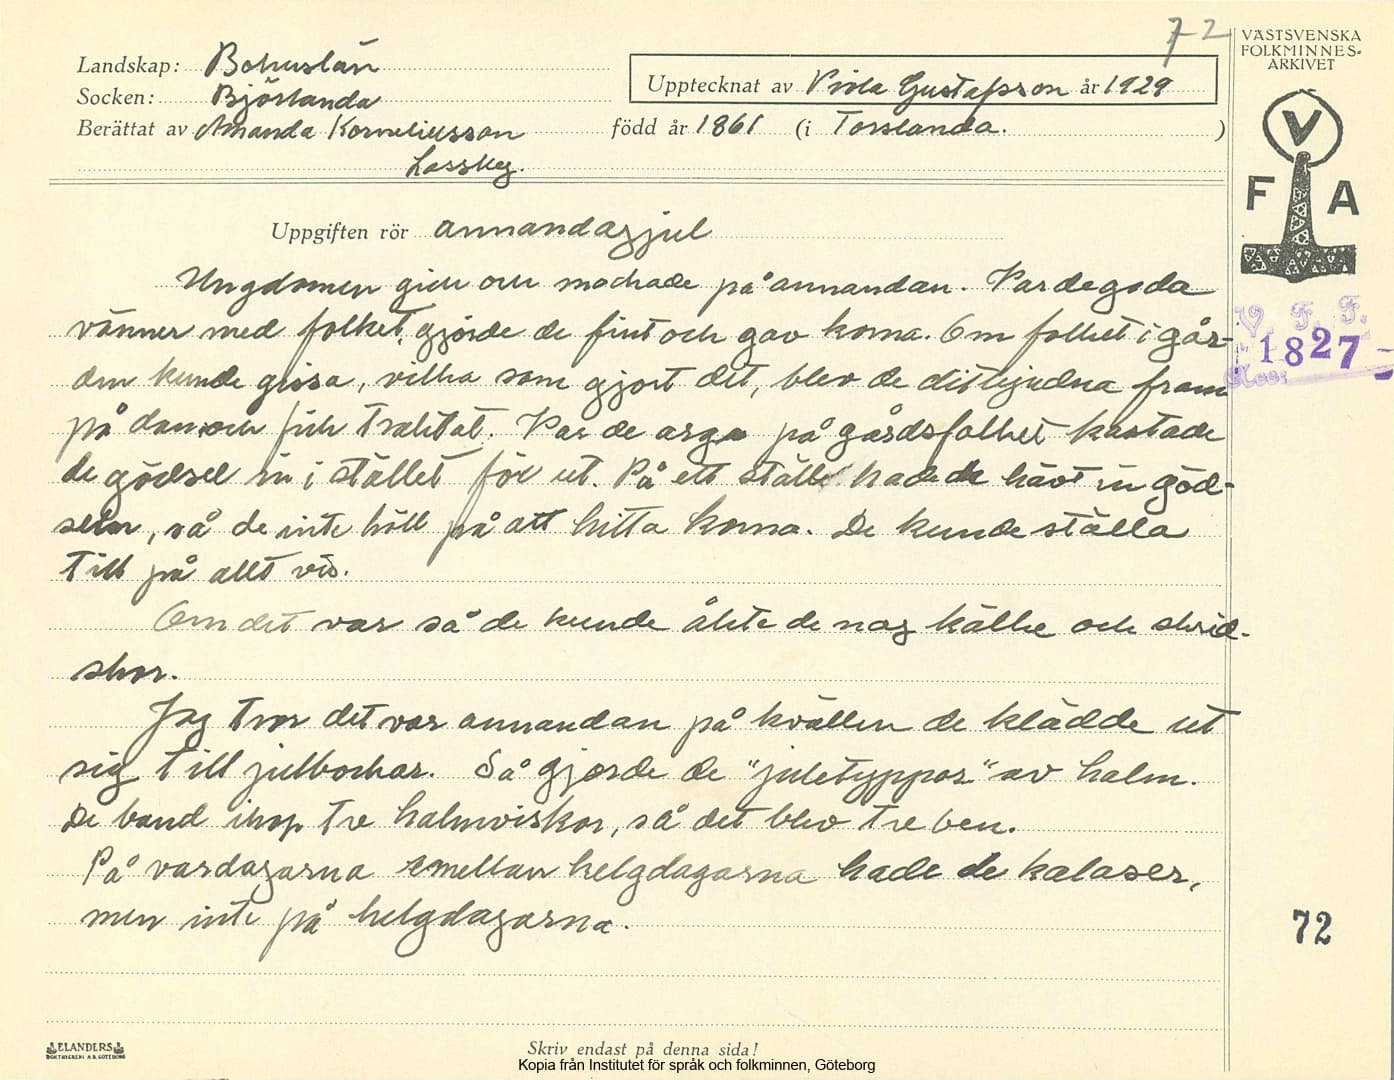 72
VÄSTSVENSKA
FOLKMINNES-
ARKIVET
Landskap: Bohuslän
Socken: Björlanda
Upptecknat av Viola Gustafsson år 1929
Berättat av Amanda Korneliusson född år 1861 (i Torslanda. )
Lossby.
V
F A
Uppgiften rör annandagjul
Ungdomen gick och mockade på annandan. Var de goda
vänner med folket, gjorde de fint och gav korna. Om folket i går-
den kunde gissa, vilka som gjort det, blev de ditbjudna fram
på dan och fick traktat. Var de arga på gårdsfolket kastade
de gödsel in i stället för ut. På ett ställe hade de hävt in göd-
seln, så de inte höll på att hitta korna. De kunde ställa
till på allt vis.
Om det var så de kunde åkte de nog kälke och skrid-
skor.
Jag tror det var annandan på kvällen de klädde ut
sig till julbockar. Så gjorde de "juletyppor" av halm.
De band ihop tre halmviskor, så det blev tre ben.
På vardagarna emellan helgdagarna hade de kalaser,
men inte på helgdagarna.
V. F. F.
1827
Acc.
72
ELANDERS
BOKTRYCKERI A.B. GÖTEBORG
Skriv endast på denna sida!
Kopia från Institutet för språk och folkminnen, Göteborg